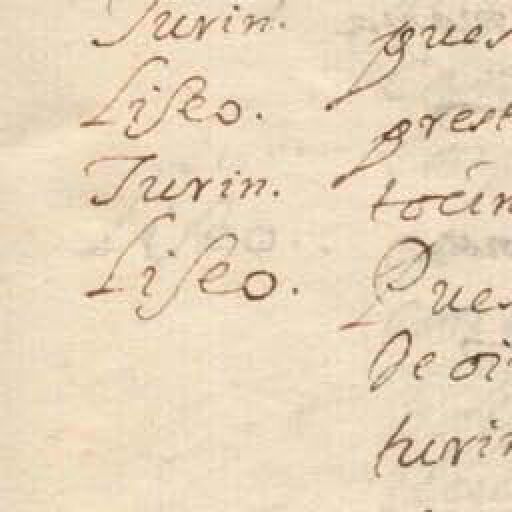 Turin. pues
Liseo. prest
Turin. tocin
Liseo. Pues
De oi
turin